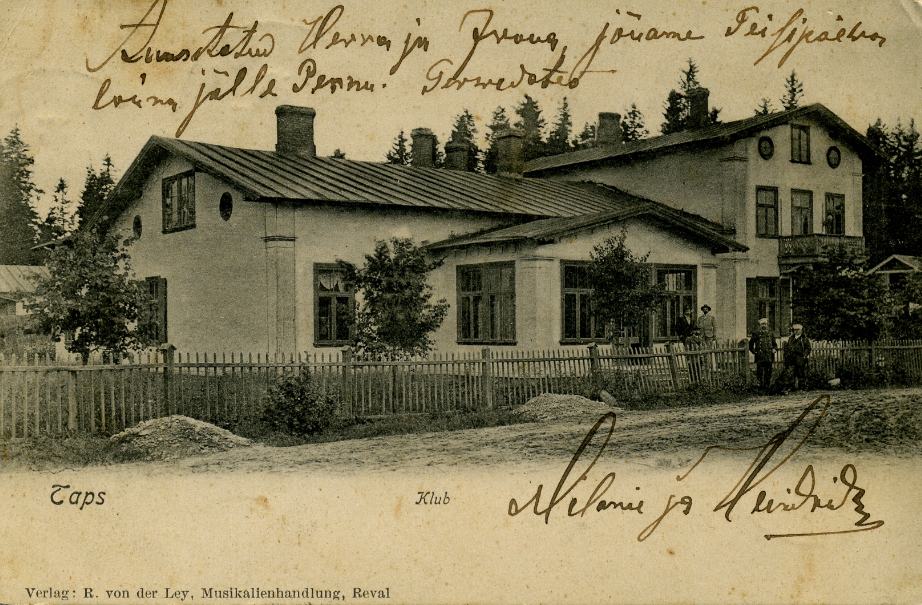 Armsatud Herra ja Proua, jõuame Teisipäeva
lõuna jälle Pernu. Terwedates
Melanie ja Meinhid
Taps
Klub
Verlag: R. von der Ley, Musikalienhandlung, Reval